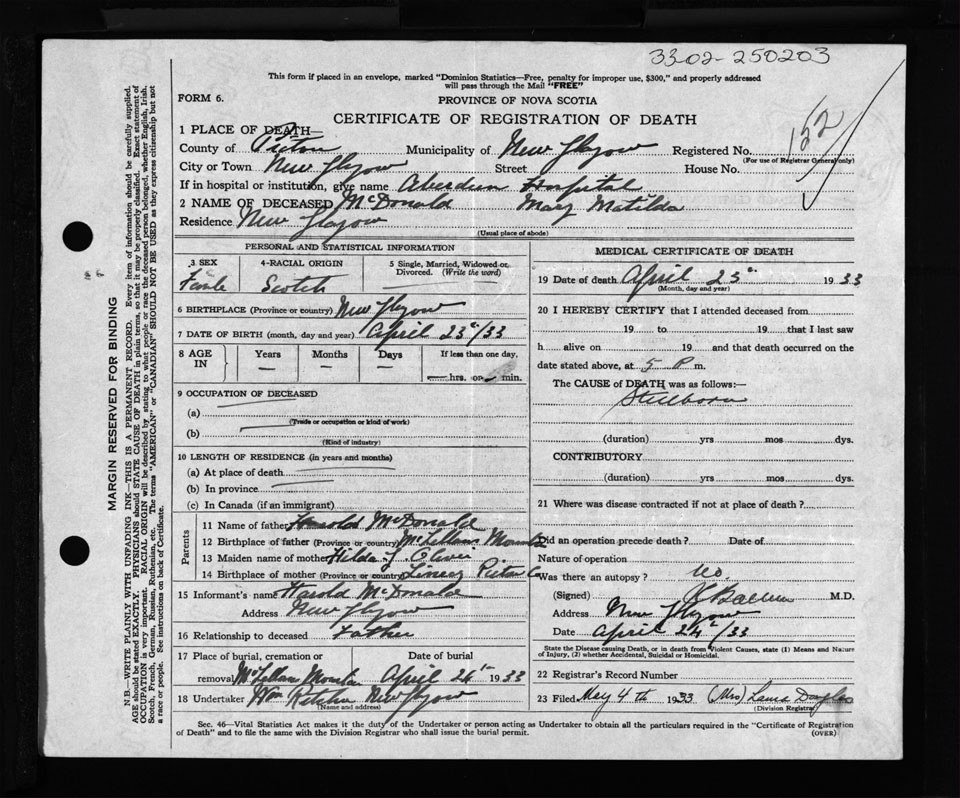 33.02-250203
This form if placed in an envelope, marked "Dominion Statistics—Free, penalty for improper use, $300," and properly addressed
will pass through the Mail "FREE"
FORM 6.
PROVINCE OF NOVA SCOTIA
CERTIFICATE OF REGISTRATION OF DEATH
1 PLACE OF DEATH—
County of Pictou Municipality of New Glasgow Registered No. 152
(For use of Registrar General only)
City or Town New Glasgow Street House No.
If in hospital or institution, give name Aberdeen Hospital
2 NAME OF DECEASED McDonald Mary Matilda
Residence New Glasgow
(Usual place of abode)
PERSONAL AND STATISTICAL INFORMATION
3 SEX 4-RACIAL ORIGIN 5 Single, Married, Widowed or
Divorced. (Write the word)
Female Scotch
6 BIRTHPLACE (Province or country) New Glasgow
7 DATE OF BIRTH (month, day and year) April 23ᵈ/33
8 AGE IN Years Months Days If less than one day,
— — — — hrs. or — min.
9 OCCUPATION OF DECEASED
(a)
(Trade or occupation or kind of work)
(b)
(Kind of industry)
10 LENGTH OF RESIDENCE (in years and months)
(a) At place of death
(b) In province
(c) In Canada (if an immigrant)
Parents
11 Name of father Harold McDonald
12 Birthplace of father (Province or country) McLellans Mountain
13 Maiden name of mother Hilda J. Oliver
14 Birthplace of mother (Province or country) Pictou Co
15 Informant's name Harold McDonald
Address New Glasgow
16 Relationship to deceased Father
17 Place of burial, cremation or Date of burial
removal McLellans Mountain April 24th 1933
18 Undertaker Wm New Glasgow
(Name and address)
MEDICAL CERTIFICATE OF DEATH
19 Date of death April 23ᵈ 1933
(Month, day and year)
20 I HEREBY CERTIFY that I attended deceased from
19 to 19 that I last saw
h alive on 19 and that death occurred on the
date stated above, at 5 P m.
The CAUSE of DEATH was as follows:—
Stillborn
(duration) yrs mos dys.
CONTRIBUTORY
(duration) yrs mos dys.
21 Where was disease contracted if not at place of death?
Did an operation precede death? Date of
Nature of operation
Was there an autopsy? no.
(Signed) M.D.
Address New Glasgow
Date April 24ᵈ/33
State the Disease causing Death, or in death from Violent Causes, state (1) Means and Nature
of Injury, (2) whether Accidental, Suicidal or Homicidal.
22 Registrar's Record Number
23 Filed May 4th 1933 (Mrs) Douglas
(Division Registrar)
Sec. 46—Vital Statistics Act makes it the duty of the Undertaker or person acting as Undertaker to obtain all the particulars required in the "Certificate of Registration
of Death" and to file the same with the Division Registrar who shall issue the burial permit. (OVER)
MARGIN RESERVED FOR BINDING
N.B.—WRITE PLAINLY WITH UNFADING INK—THIS IS A PERMANENT RECORD. Every item of information should be carefully supplied.
AGE should be stated EXACTLY. PHYSICIANS should STATE CAUSE OF DEATH in plain terms, so that it may be properly classified. Exact statement of
OCCUPATION is very important. RACIAL ORIGIN will be described by stating to what people or race the deceased person belonged, whether English, Irish,
Scotch, French, German, Russian, Ruthenian, etc. The terms "AMERICAN" or "CANADIAN" SHOULD NOT BE USED as they express citizenship but not
a race or people. See instructions on back of Certificate.